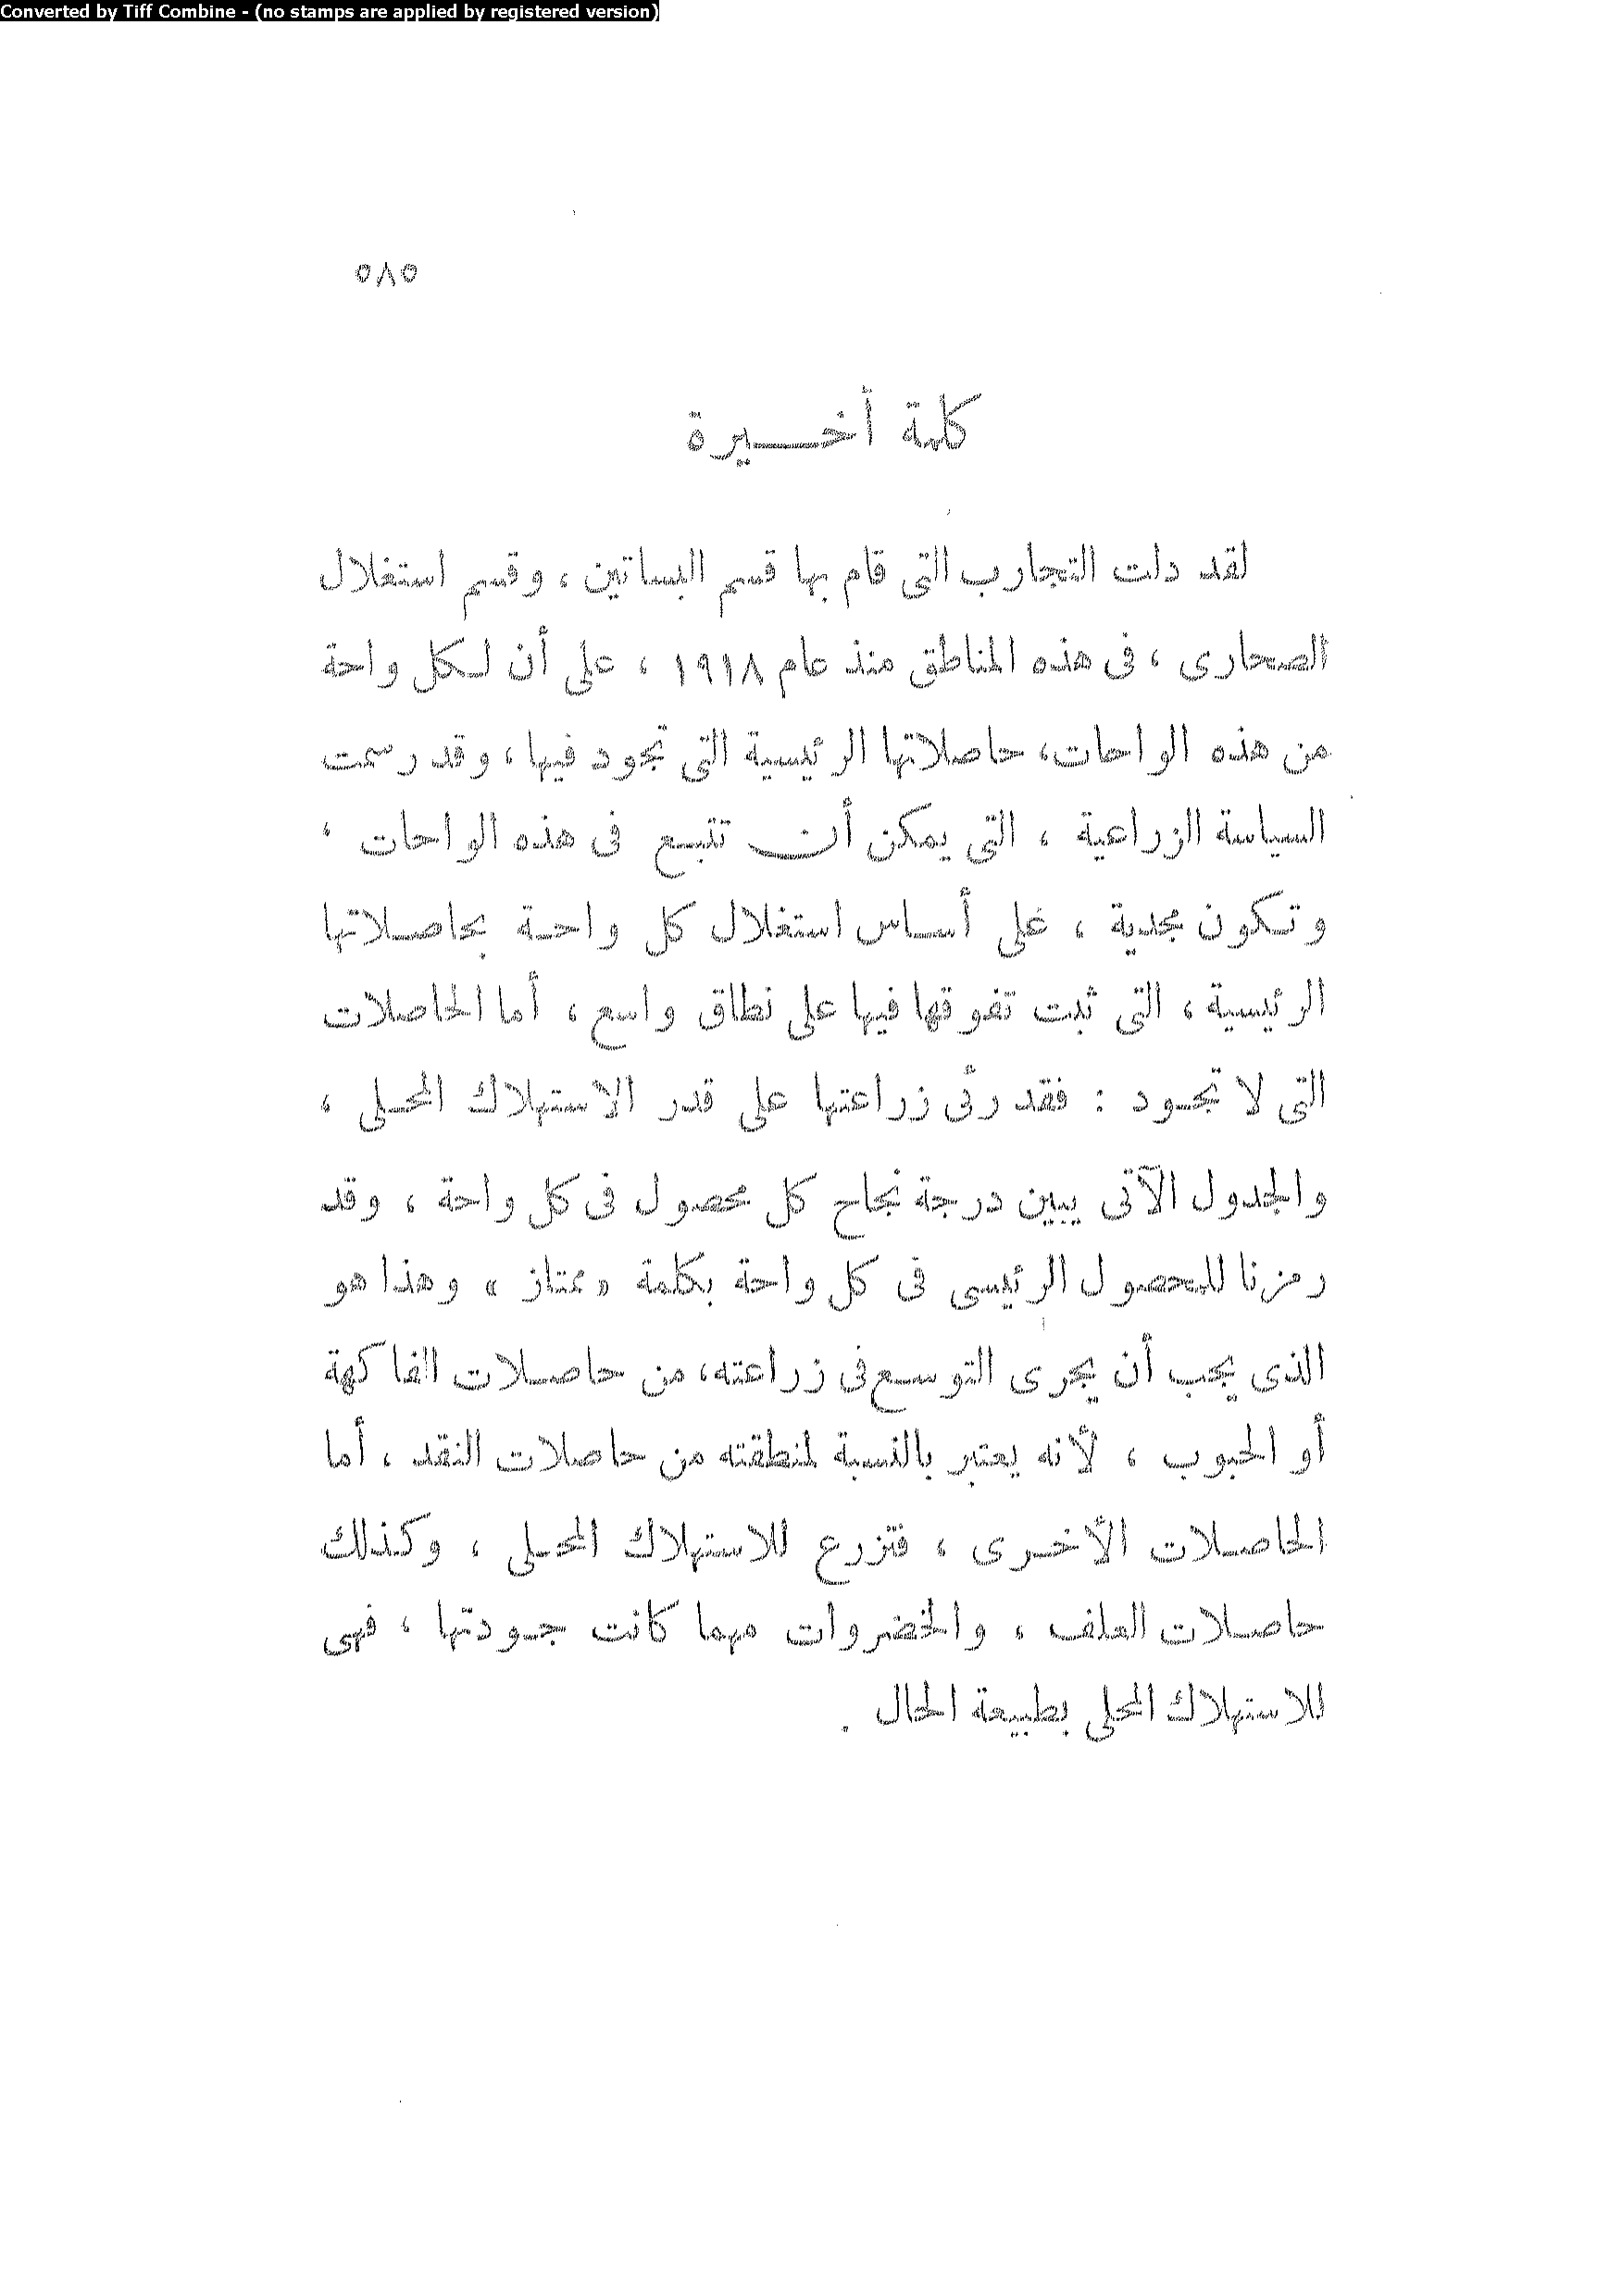 Converted by Tiff Combine - (no stamps are applied by registered version)
٥٨٥
كلمة أخيرة
لقد دلت التجارب التى قام بها قسم البساتين ، وقسم استغلال
الصحارى ، فى هذه المناطق منذ عام ١٩١٨ ، على أن لكل واحة
من هذه الواحات، حاصلاتها الرئيسية التى تجود فيها، وقد رسمت
السياسة الزراعية ، التى يمكن أن تتبع فى هذه الواحات ،
وتكون مجدية ، على أساس استغلال كل واحة بحاصلاتها
الرئيسية ، التى ثبت تفوقها فيها على نطاق واسع ، أما الحاصلات
التى لا تجود : فقد رئى زراعتها على قدر الاستهلاك المحلى ،
والجدول الآتى يبين درجة نجاح كل محصول فى كل واحة ، وقد
رمزنا للمحصول الرئيسى فى كل واحة بكلمة «ممتاز» وهذا هو
الذى يجب أن يجرى التوسع فى زراعته، من حاصلات الفاكهة
أو الحبوب ، لأنه يعتبر بالنسبة لمنطقته من حاصلات النقد ، أما
الحاصلات الأخرى ، فتزرع للاستهلاك المحلى ، وكذلك
حاصلات العلف ، والخضروات مهما كانت جودتها ، فهى
للاستهلاك المحلى بطبيعة الحال .